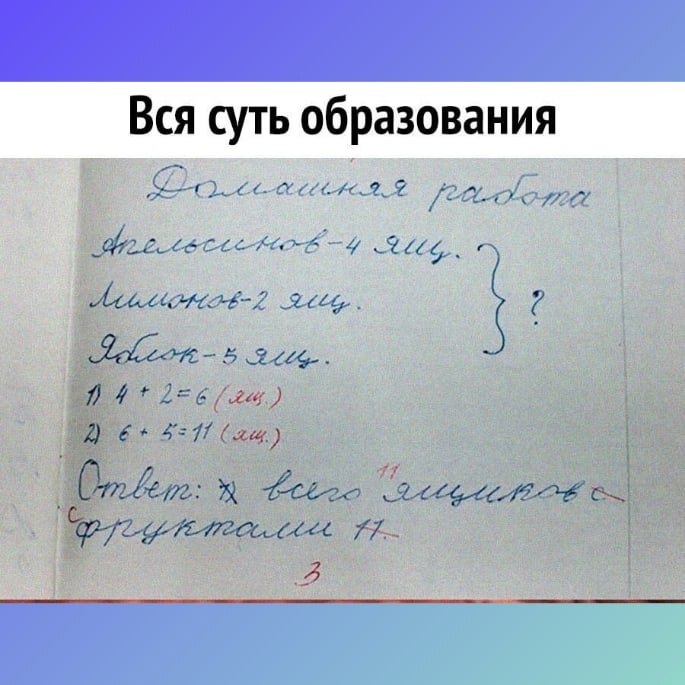 Вся суть образования
Домашняя работа
Апельсинов-4 ящ.
Лимонов-2 ящ. } ?
Яблок-5 ящ.
1) 4 + 2=6 (ящ.)
2) 6 + 5=11 (ящ.)
11
Ответ: всего ящиков с
с фруктами 11.
3